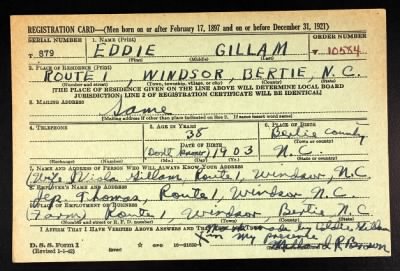 REGISTRATION CARD—(Men born on or after February 17, 1897 and on or before December 31, 1921)
SERIAL NUMBER 1. NAME (Print) ORDER NUMBER
T 879 EDDIE GILLAM T 10584
(First) (Middle) (Last)
2. PLACE OF RESIDENCE (Print)
ROUTE 1, WINDSOR, BERTIE, N.C.
(Number and street) (Town, township, village, or city) (County) (State)
[THE PLACE OF RESIDENCE GIVEN ON THE LINE ABOVE WILL DETERMINE LOCAL BOARD
JURISDICTION; LINE 2 OF REGISTRATION CERTIFICATE WILL BE IDENTICAL]
3. MAILING ADDRESS
Same
[Mailing address if other than place indicated on line 2. If same insert word same]
4. TELEPHONE 5. AGE IN YEARS 6. PLACE OF BIRTH
38 Bertie County
DATE OF BIRTH (Town or county)
(Dont Know) 1903 N.C.
(Exchange) (Number) (Mo.) (Day) (Yr.) (State or country)
7. NAME AND ADDRESS OF PERSON WHO WILL ALWAYS KNOW YOUR ADDRESS
(Wife) Viola Gillam, Route 1, Windsor, N.C.
8. EMPLOYER'S NAME AND ADDRESS
Thomas, Route 1, Windsor N.C.
9. PLACE OF EMPLOYMENT OR BUSINESS
(Farm) Route 1, Windsor, Bertie N.C.
(Number and street or R. F. D. number) (Town) (County) (State)
I AFFIRM THAT I HAVE VERIFIED ABOVE ANSWERS AND THAT THEY ARE TRUE.
made by Eddie Gillam
in my presence
D. S. S. Form 1
(Revised 1-1-42) (over) GPO 16-21630-1 Millard R. Brown